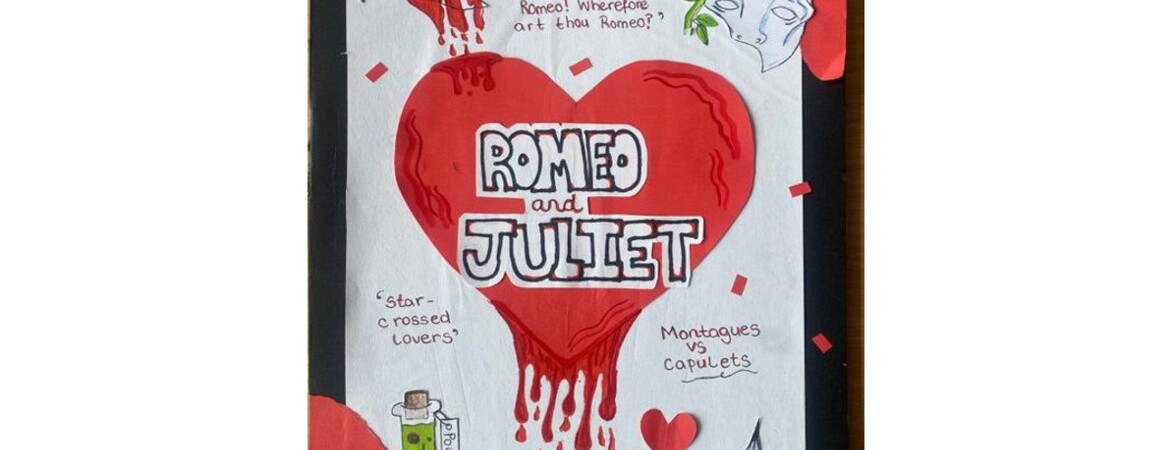 Romeo! Wherefore
art thou Romeo?"
ROMEO
and
JULIET
'Star-
crossed
lovers'
Montagues
vs
Capulets